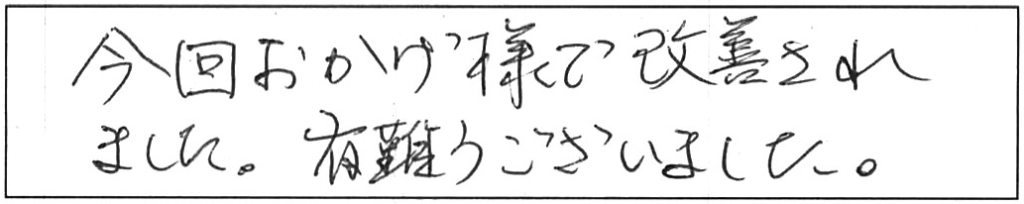 今回おかげ様で改善され
ました。有難うございました。